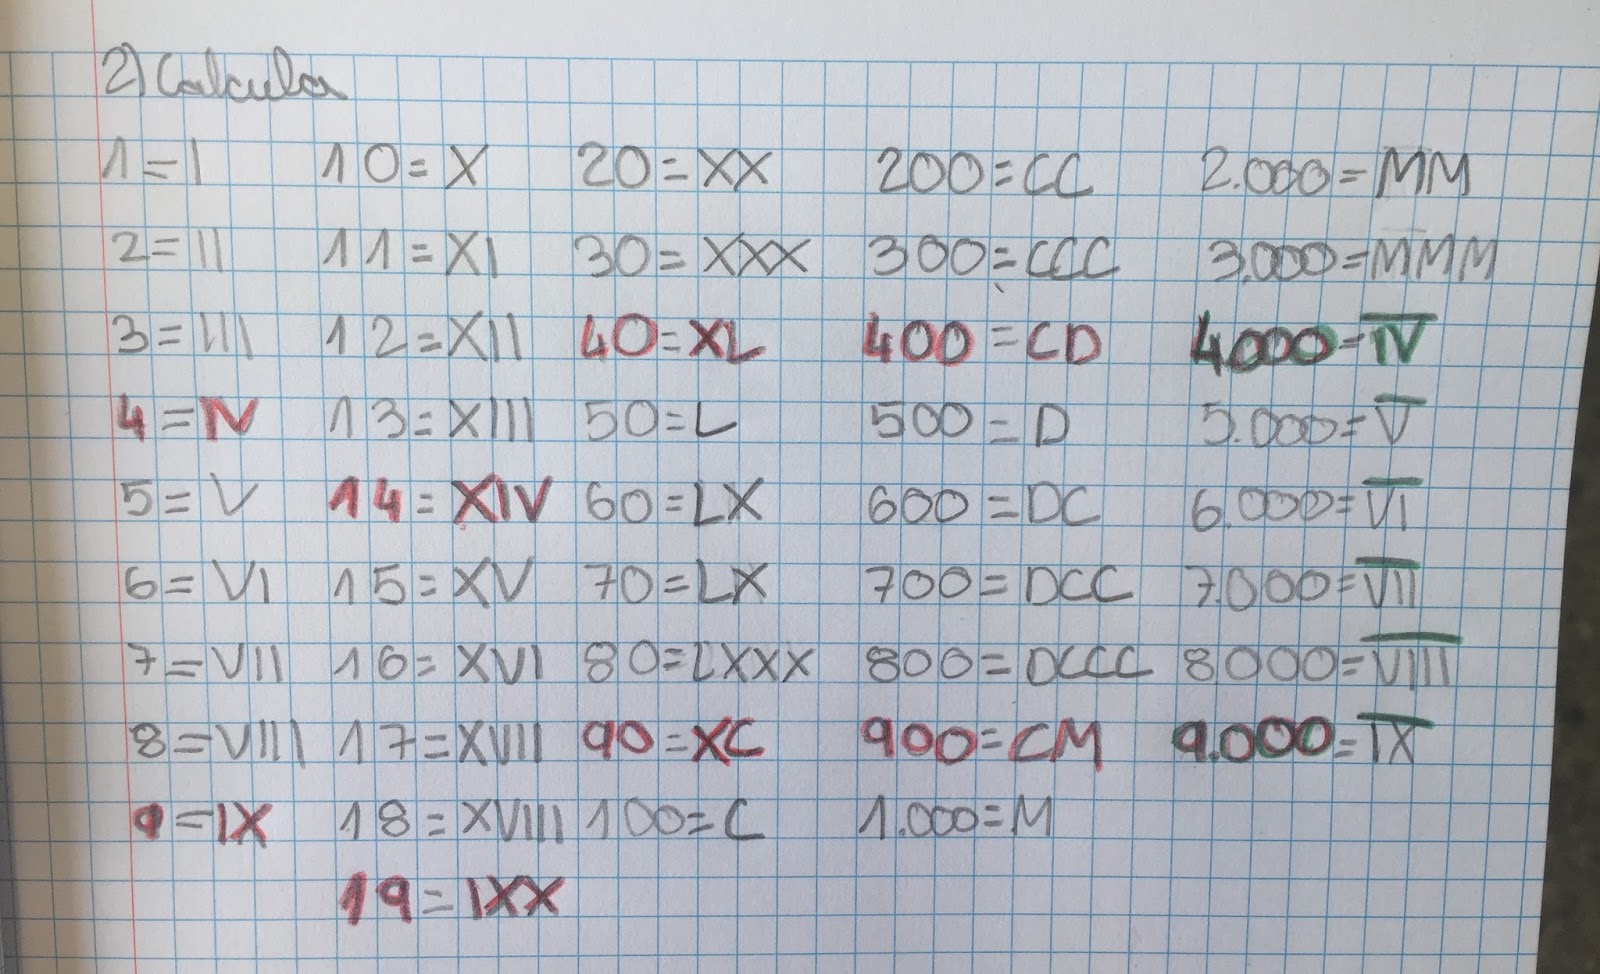 2) Calcula
1=I 10=X 20=XX 200=CC 2.000=MM
2=II 11=XI 30=XXX 300=CCC 3.000=MMM
3=III 12=XII 40=XL 400=CD 4.000=I̅V̅
4=IV 13=XIII 50=L 500=D 5.000=V̅
5=V 14=XIV 60=LX 600=DC 6.000=V̅I̅
6=VI 15=XV 70=LX 700=DCC 7.000=V̅I̅I̅
7=VII 16=XVI 80=LXXX 800=DCCC 8000=V̅I̅I̅I̅
8=VIII 17=XVII 90=XC 900=CM 9.000=I̅X̅
9=IX 18=XVIII 100=C 1.000=M
19=IXX